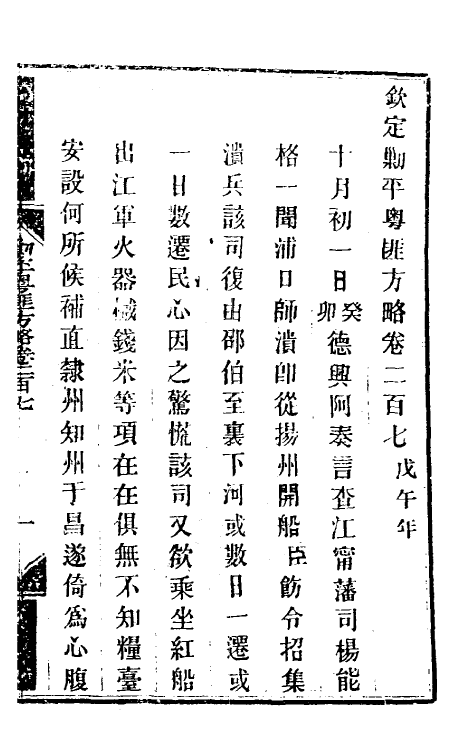 欽定剿平粵匪方略卷二百七戊午年
十月初一日癸卯德興阿奏言查江甯藩司楊能
格一聞浦口師潰卽從揚州開船臣飭令招集
潰兵該司復由邵伯至裏下河或數日一遷或
一日數遷民心因之驚慌該司又欲乘坐紅船
出江軍火器械錢米等項在在俱無不知糧臺
安設何所候補直隸州知州于昌遂倚爲心腹
剿平粵匪方略卷二百七
一